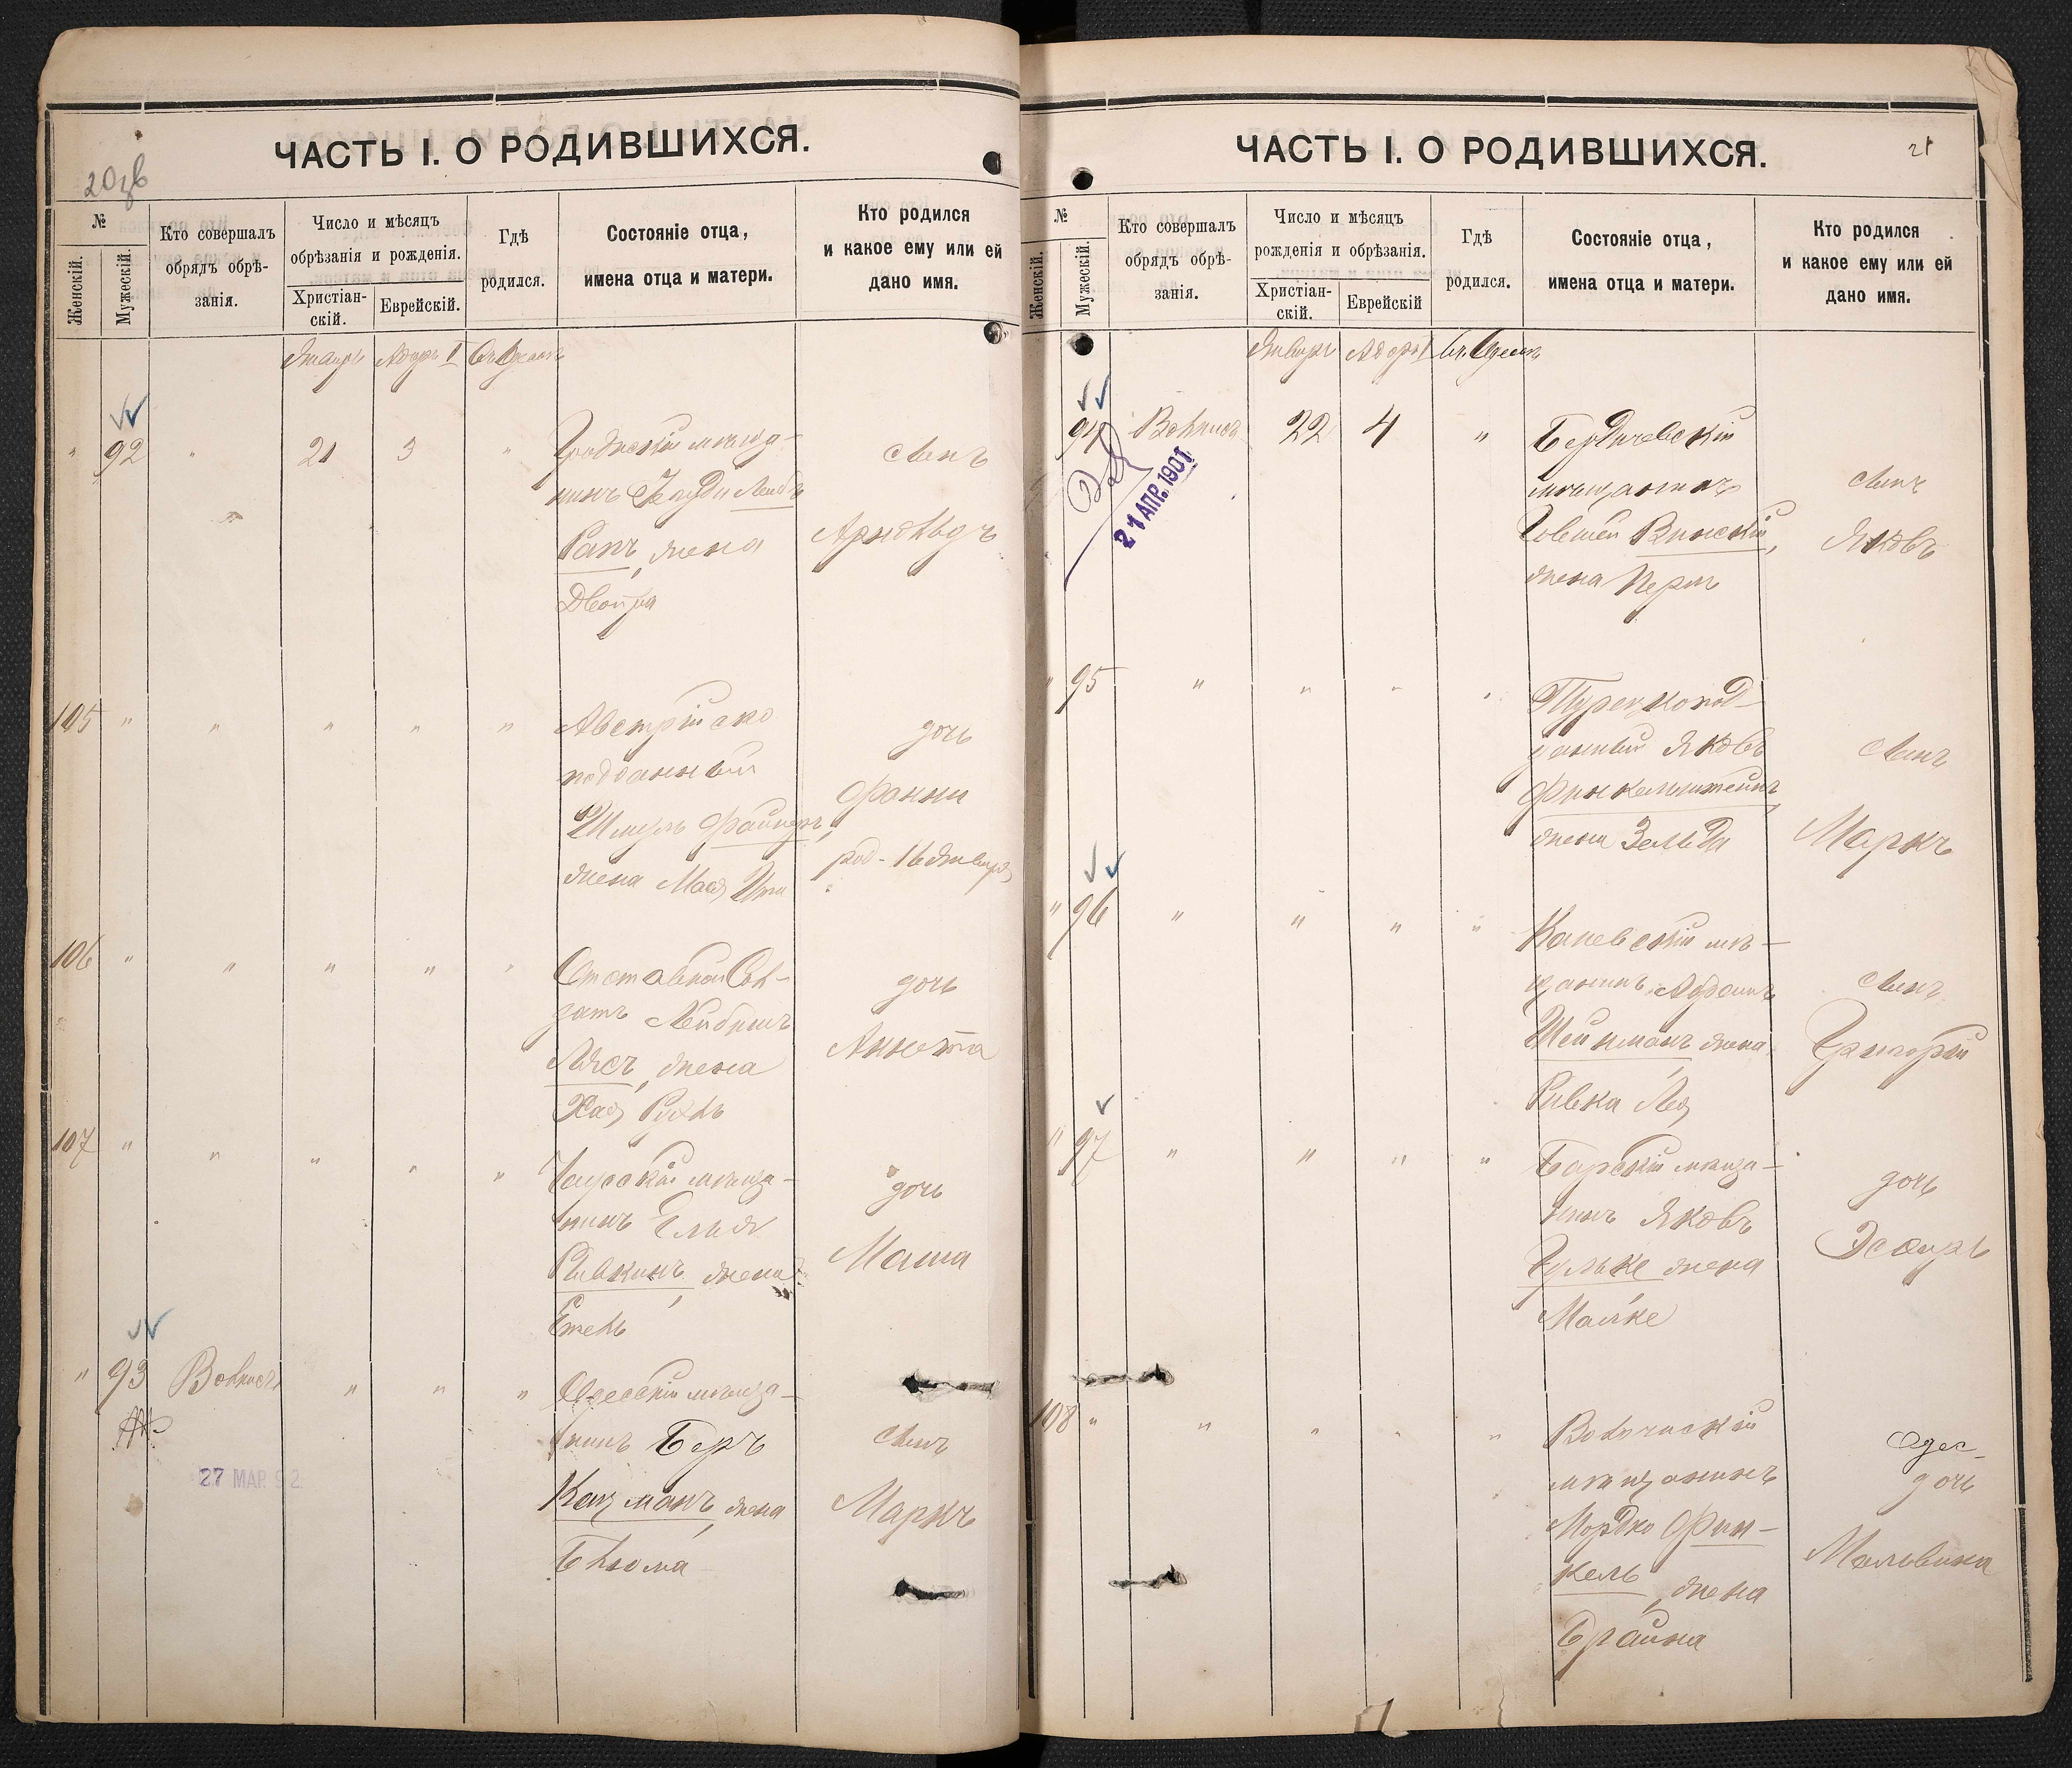 ЧАСТЬ I. О РОДИВШИХСЯ.
№
Женскій.
Мужескій.
Кто совершалъ
обрядъ обрѣ-
занія.
Число и мѣсяцъ
обрѣзанія и рожденія.
Христіан-
скій.
Еврейскій.
Гдѣ
родился.
Состояніе отца,
имена отца и матери.
Кто родился
и какое ему или ей
дано имя.
Январь Адаръ I
" 92 " 21 3 "
Гродненскій мѣща-
нинъ Лейбъ
Рапъ, жена
Двойра
сынъ
Арнольдъ
105 " " " " "
Австрійско
подданный
Шмуль Файнеръ,
жена Мася
дочь
Фанни
род. 16 Января
106 " " " " "
Отставной Сол-
датъ Лейбишъ
жена
Хая Рухль
дочь
Аннета
107 " " " " "
мѣща-
нинъ Елья
Ривкинъ, жена
дочь
Маша
" 93 " " "
Одесскій мѣща-
нинъ Беръ
Кацманъ, жена
Блюма
сынъ
Маркъ
27 МАР. 92
ЧАСТЬ I. О РОДИВШИХСЯ.
21
№
Женскій.
Мужескій.
Кто совершалъ
обрядъ обрѣ-
занія.
Число и мѣсяцъ
рожденія и обрѣзанія.
Христіан-
скій.
Еврейскій
Гдѣ
родился.
Состояніе отца,
имена отца и матери.
Кто родился
и какое ему или ей
дано имя.
Январь Адаръ I
94 22 4 "
21 АПР. 1901
Бердичевскій
мѣщанинъ
Говшей Винскій,
жена Перль
сынъ
Яковъ
" 95 " " " "
Турецкопод-
данный Яковъ
Финкельштейнъ,
жена Зельда
сынъ
Маркъ
" 96 " " " "
Каневскій мѣ-
щанинъ
Шейнманъ, жена
Ривка Лея
сынъ
Григорій
" 97 " " " "
Барскій мѣща-
нинъ Яковъ
Гульке жена
Малке
дочь
Эсфирь
108 " " " " "
мѣщанинъ
Мордко Фин-
кель, жена
Брайна
дочь
Мальвина